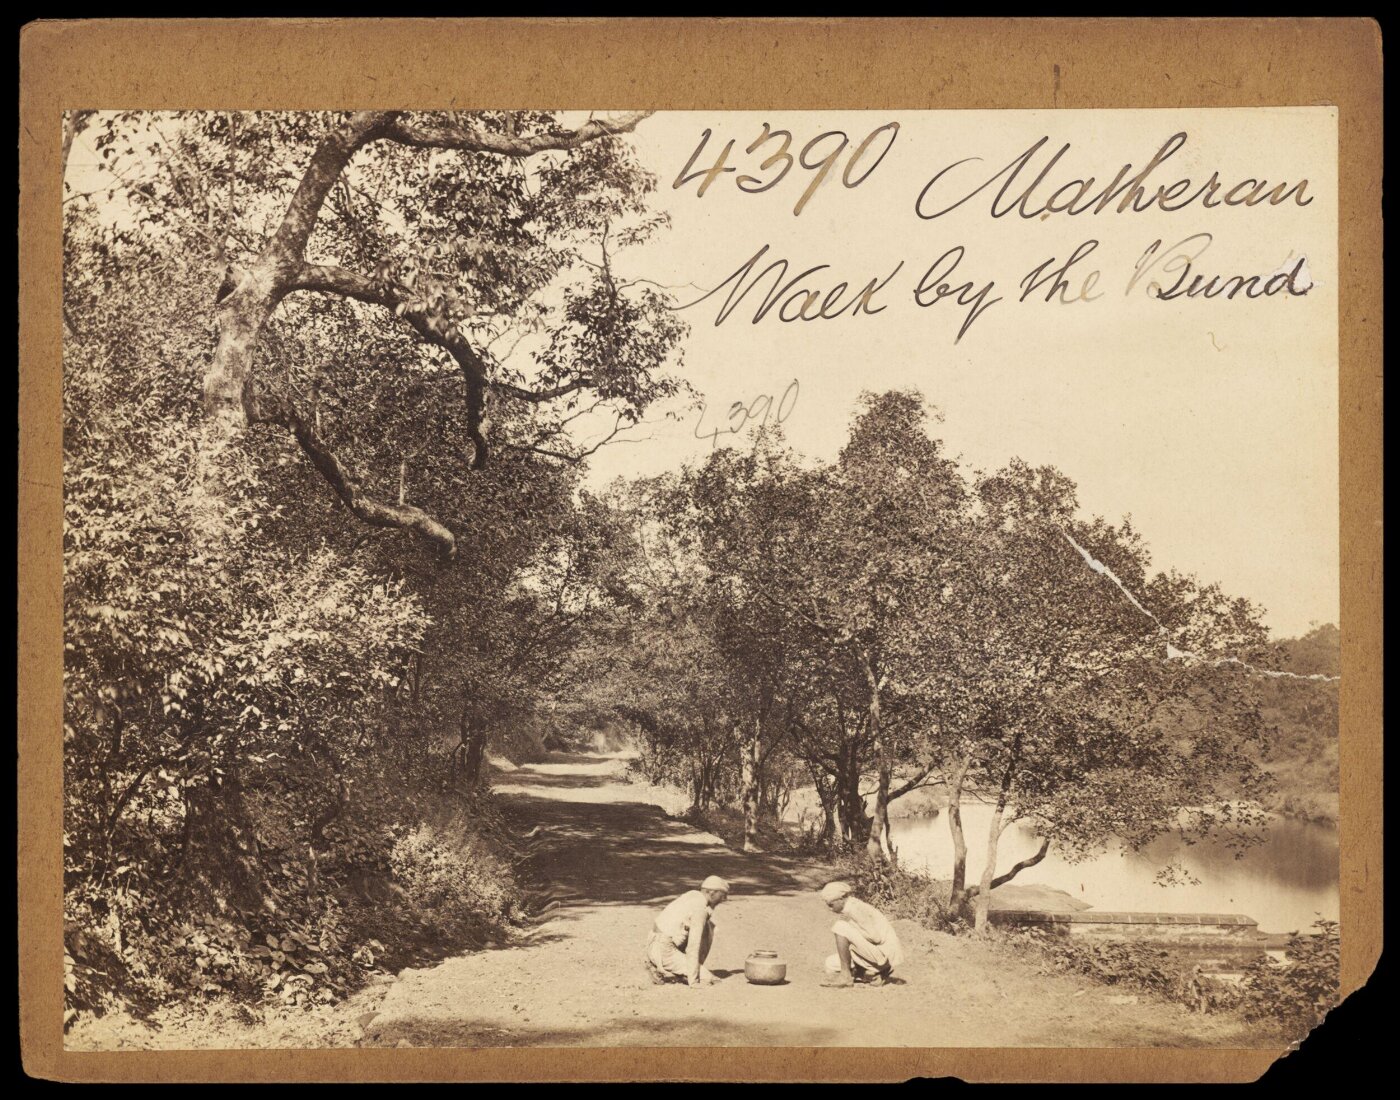 4390 Matheran
Walk by the Bund
4390